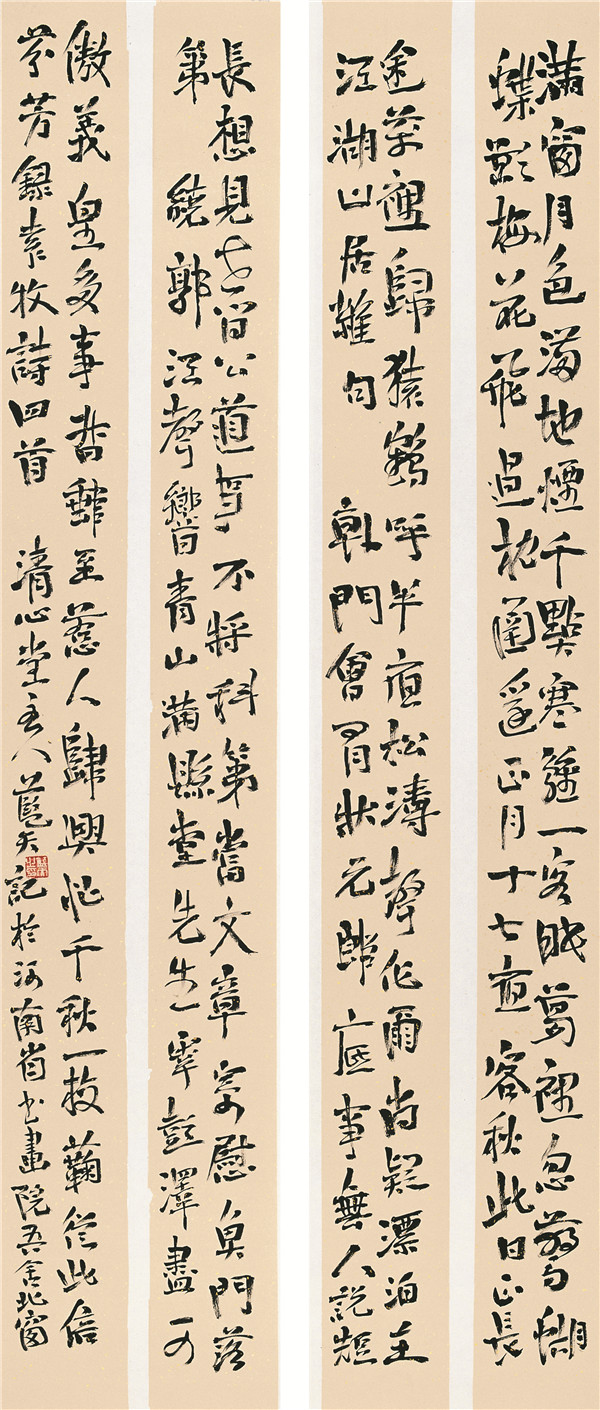 滿窗月色滿地煙千點寒鐘一客眠夢裡忽驚蝴
蝶影梅花飛過枕函邊正月十七夜客秋此日正長
途萬裡歸猿鶴呼半夜松濤聲作雨尚疑漂泊在
江湖山居雜句門曾有狀元郎底事無人說短
長想見世間公道事不將科第當文章寄慰門落
第繞郭江聲響青山滿縣堂先生宰彭澤盡可
傲義皇多事督郵至惹人歸興忙千秋一枝菊從此信
芬芳錄袁牧詩四首清心堂主人藍天記於河南省書畫院吾舍北窗